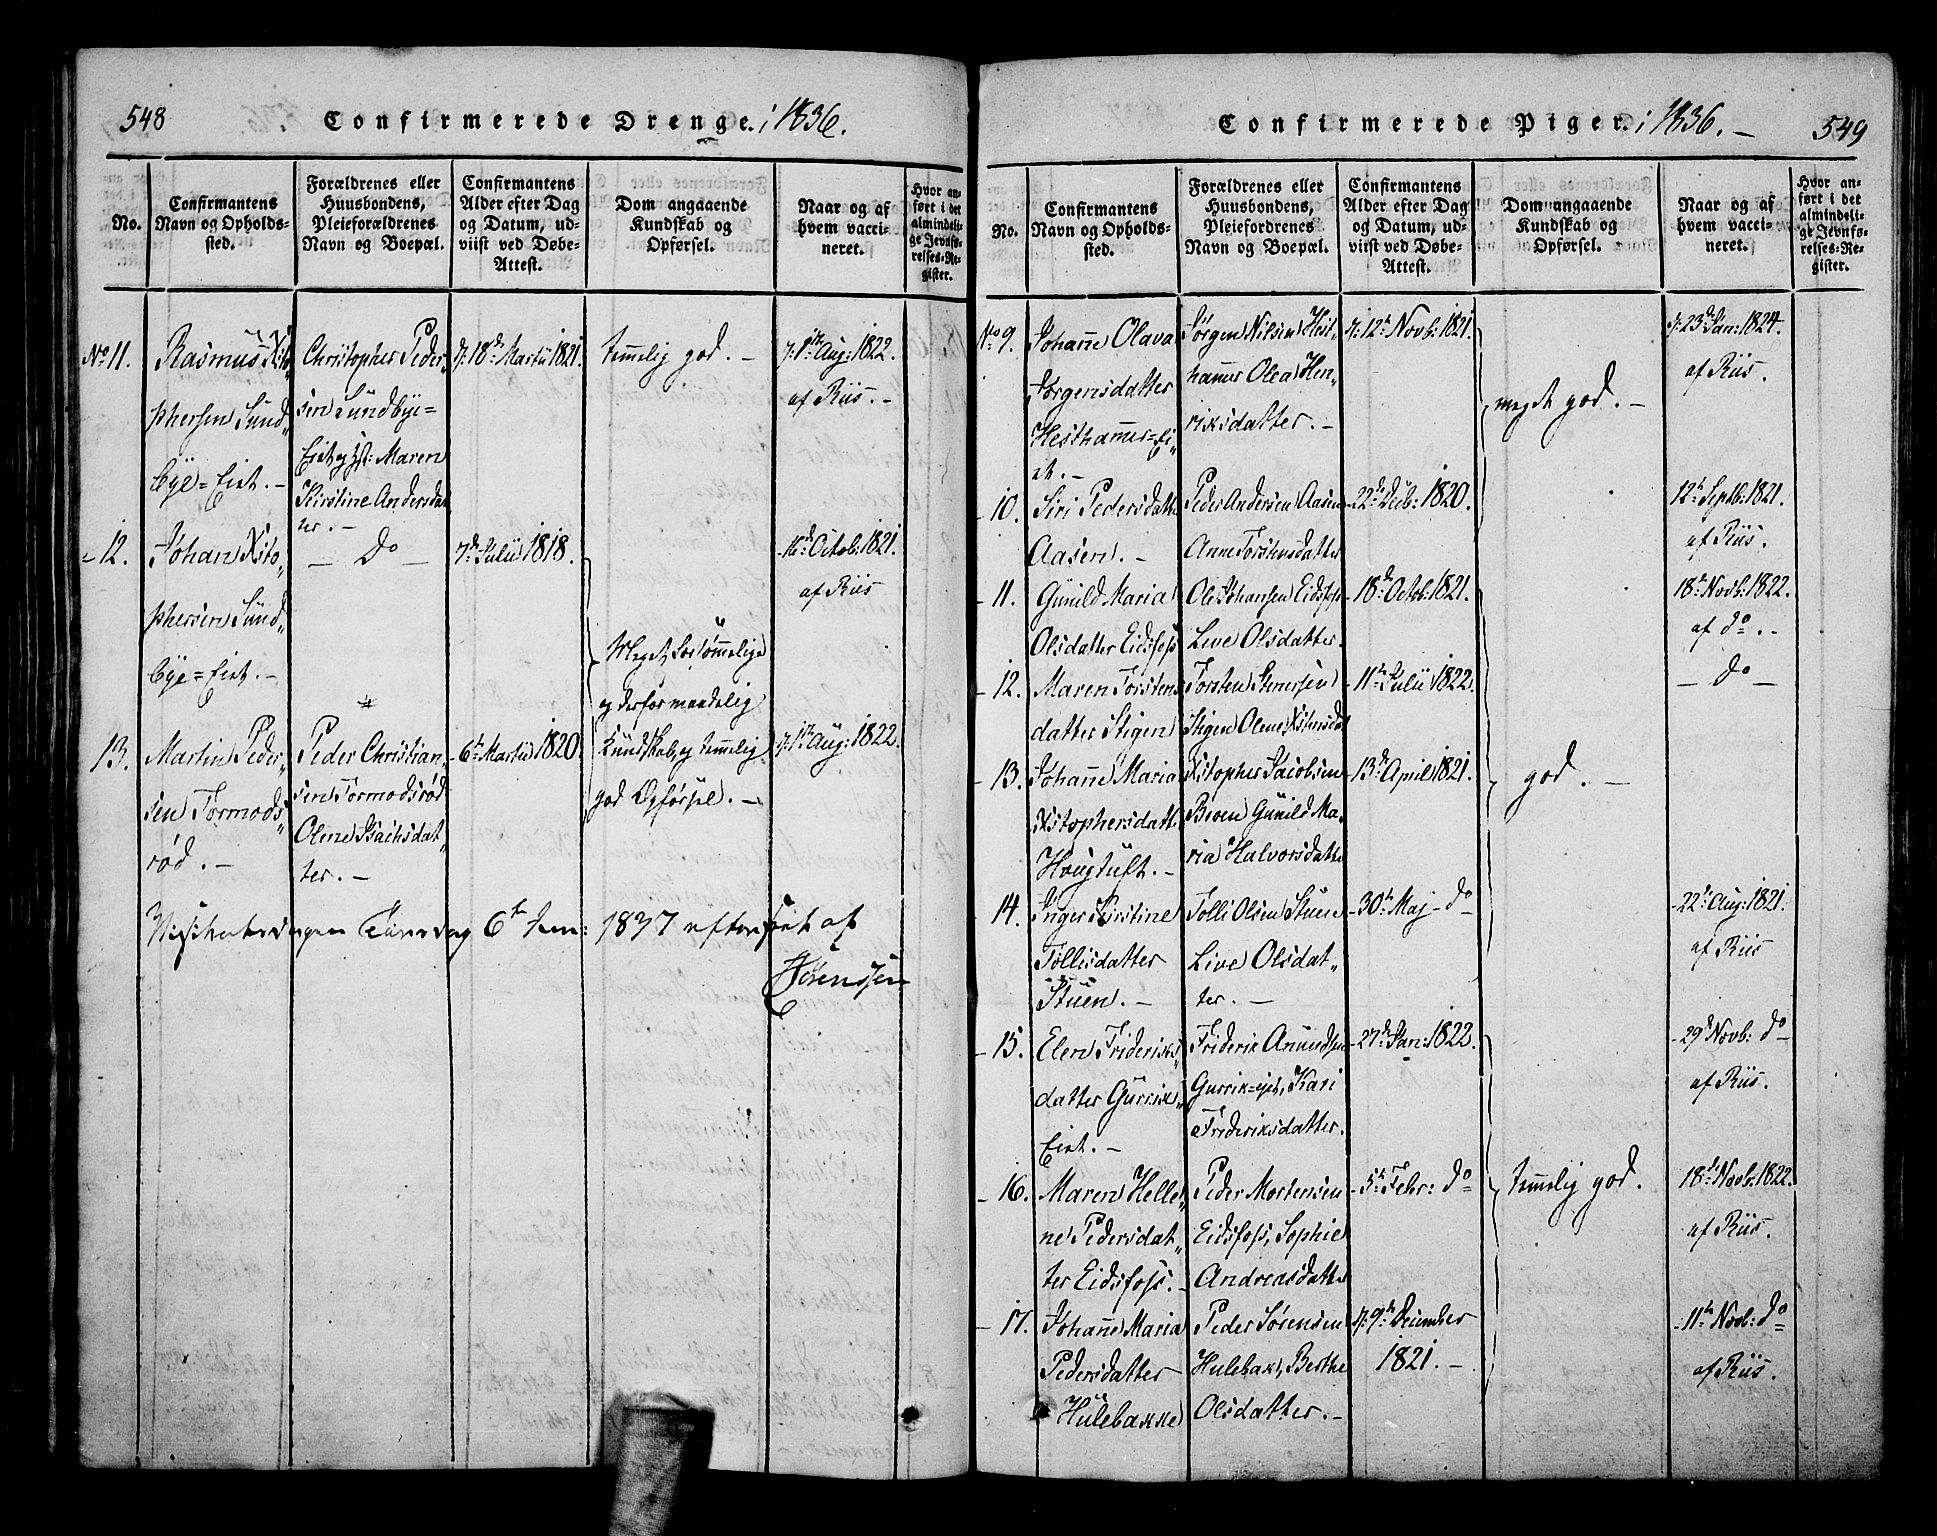 548
Confirmerede Drenge. i 1836.
No.
Confirmantens
Navn og Opholds-
sted.
Forældrenes eller
Huusbondens,
Pleieforældrenes
Navn og Boepæl.
Confirmantens
Alder efter Dag
og Datum, ud-
viist ved Døbe-
Attest.
Dom angaaende
Kundskab og
Opførsel.
Naar og af
hvem vacci-
neret.
Hvor an-
ført i det
almindeli-
ge Jevnfø-
relses-Re-
gister.
No 11.
Rasmus Xsto„
phersen Sund„
bye=Eiet. -
Christopher Peder„
sen Sundbye=
Eiet og Hst: Maren
Kirstine Andersdat
ter. -
18de Martii 1821.
temmelig god. -
1ste Aug: 1822.
af Riis. -
- 12.
Johan Xsto„
phersen Sund„
bye=Eiet. -
- Do -
7de Julii 1818.
Meget
og
Kundskab og temmelig
god Opførsel. -
16de Octob: 1821.
af Riis
13.
Martin Peder„
sen Tormods„
rød. -
Peder Christian„
sen Tormodsrød
Olene Isachsdat„
ter. -
6te Martii 1820.
1ste Aug: 1822.
6te Jan: 1837 efterseet af
Sørenssen
Confirmerede Piger. i 1836. -
549
No.
Confirmantens
Navn og Opholds-
sted.
Forældrenes eller
Huusbondens,
Pleiefordrenes
Navn og Boepæl.
Confirmantens
Alder efter Dag
og Datum, ud-
viist ved Døbe-
Attest.
Dom angaaende
Kundskab og
Opførsel.
Naar og af
hvem vacci-
neret.
Hvor an-
ført i det
almindeli-
ge Jevnfø-
relses-Re-
gister.
No 9.
Johanne Olava
Jørgensdatter
Hesthammer=Ei„
et. -
Jørgen Nilsen Hest„
hammer Olea Hen„
riksdatter. -
12te Novb: 1821.
meget god. -
23de Jan: 1824.
af Riis.
- 10.
Siri Pedersdatter
Aasen. -
Peder Andersen Aasen
Anne Torstensdatter
22de Decb: 1820.
12te Septb: 1821.
af Riis.
- 11.
Gunild Maria
Olsdatter Eidsfoss
Ole Johansen Eidsfoss
Live Olsdatter.
18de Octob: 1821.
18de Novb: 1822.
af do. -
- 12.
Maren Torstens
datter Stigen
Torsten Stenersen
Stigen Olene Xstensdat
11te Julii 1822.
- Do -
- 13.
Johanne Maria
Xstophersdatter
Hougtuft. -
Xstopher Jacobsen
Broen Gunild Ma„
ria Halvorsdatter
13de April 1821.
god. -
14.
Inger Kirstine
Tollisdatter
Stuen. -
Tolli Olsen Stuen
Live Olsdat„
ter. -
30te Maj - do
22de Aug: 1821.
af Riis
- 15.
Elen Frideriks„
datter Gurrik„
Eiet. -
Friderik Anundsen
Gurrik=eiet, Kari
Frideriksdatter.
27de Jan: 1822.
temmelig god.
29de Novb: do
af Riis.
- 16.
Maren Helle„
ne Pedersdat„
ter Eidsfoss. -
Peder Mortensen
Eidsfoss, Sophie
Andreasdatter
5te Febr: do
18de Novb: 1822.
af Riis.
- 17.
Johanne Maria
Pedersdatter
Hulebakke
Peder Sørensen
Hulebak, Berthe
Olsdatter. -
9de December
1821. -
11te Novb: do
af Riis.